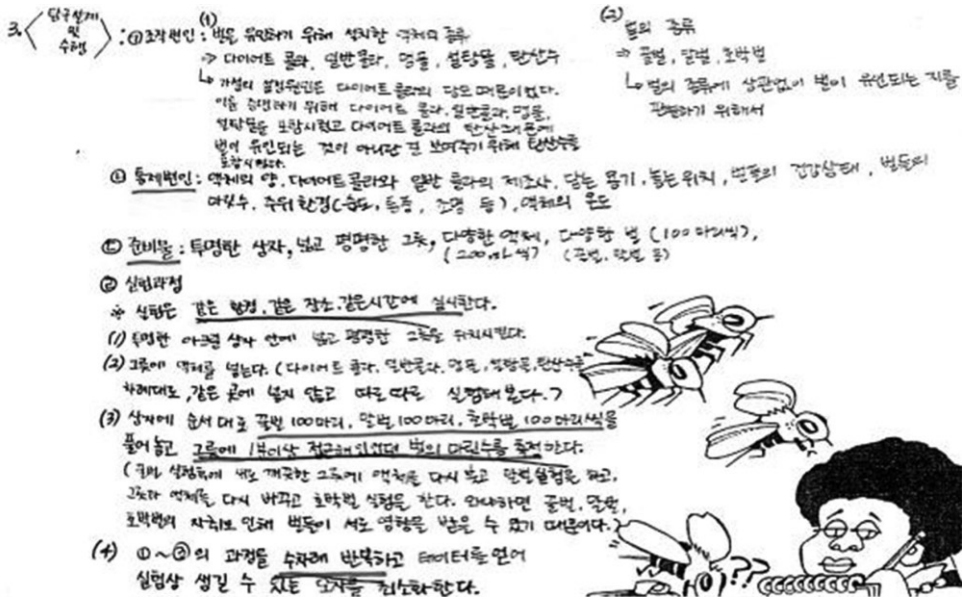 3. 탐구설계 및 수행 : ㉠ 조작변인 : (1) 벌을 유인하기 위해 설치한 액체의 종류
⇒ 다이어트 콜라, 일반콜라, 맹물, 설탕물, 탄산수
↳ 가설의 설정원인은 다이어트콜라의 당도 때문이었다.
이를 증명하기 위해 다이어트 콜라, 일반콜라, 맹물,
설탕물을 포함시켰고 다이어트 콜라의 탄산 때문에
벌이 유인되는 것이 아니란 걸 보여주기 위해 탄산수를
포함시켰다.
(2) 벌의 종류
⇒ 꿀벌, 말벌, 호박벌
↳ 벌의 종류에 상관없이 벌이 유인되는 지를
판단하기 위해서
통제변인 : 액체의 양, 다이어트콜라와 일반 콜라의 제조사, 담는 용기, 놓는 위치, 벌들의 건강상태, 벌들의
마릿수, 주위 환경(습도, 조명 등), 액체의 온도
㉢ 준비물 : 투명한 상자, 넓고 평평한 그릇, 다양한 액체, 다양한 벌 (100마리씩),
(200mL씩) (꿀벌, 말벌 등)
㉣ 실험과정
※ 실험은 같은 환경, 같은 장소, 같은시간에 실시한다.
(1) 투명한 아크릴 상자 안에 넓고 평평한 그릇을 위치시킨다.
(2) 그릇에 액체를 넣는다. (다이어트 콜라, 일반콜라, 맹물, 설탕물, 탄산수를
차례대로, 같은 곳에 넣지 않고 따로 따로 실험해 본다.)
(3) 상자에 순서 대로 꿀벌 100마리, 말벌 100마리, 호박벌 100마리씩을
풀어 놓고 그릇에 1분이상 접근해있었던 벌의 마릿수를 측정한다.
(꿀벌 실험후에 새로 깨끗한 그릇에 액체를 다시 놓고 말벌실험을 하고,
그릇과 액체를 다시 바꾸고 호박벌 실험을 한다. 왜냐하면 꿀벌, 말벌,
호박벌의 자취로 인해 벌들이 서로 영향을 받을 수 있기 때문이다.)
(4) ①~③의 과정을 수차례 반복하고 데이터를 얻어
실험상 생길 수 있는 오차를 최소화한다.
??